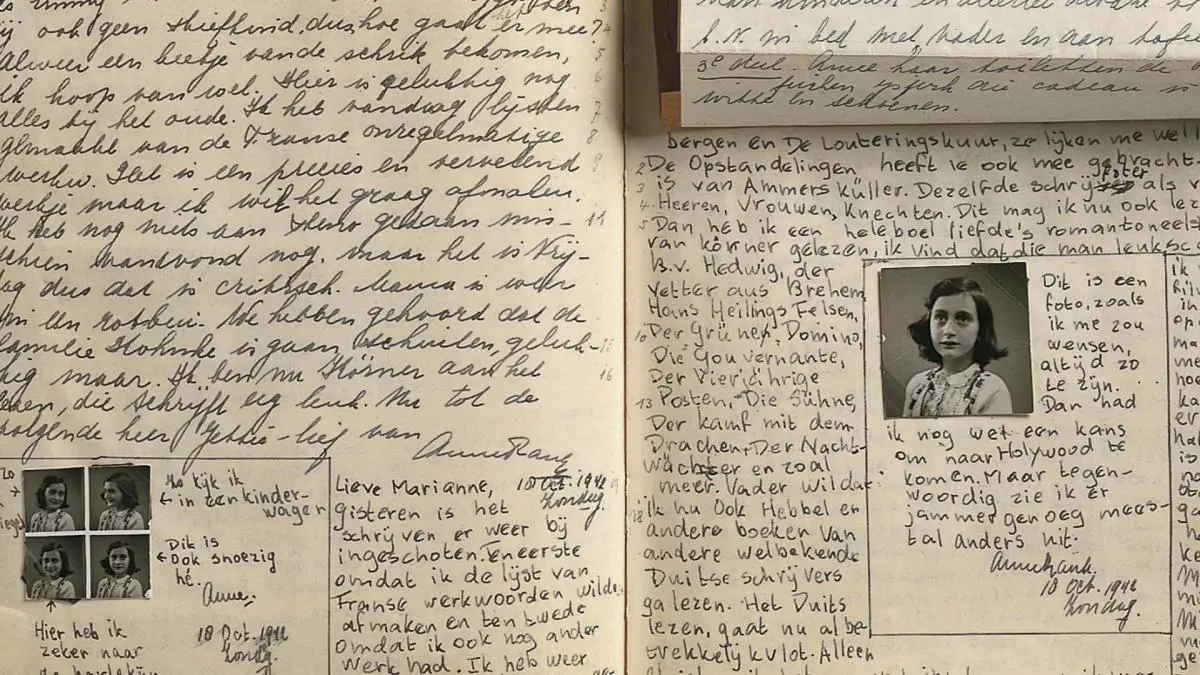 ij ook geen stiefkind, dus hoe gaat er mee? 4
Alweer een beetje van de schrik bekomen, 5
ik hoop van wel. Hier is gelukkig nog 6
alles bij het oude. Ik heb vandaag lijsten 7
gemaakt van de Franse onregelmatige 8
werkw. Het is een precies en vervelend 9
werkje maar ik wil het graag afmaken.
Ik heb nog niets aan steno gedaan mis- 11
schien vanavond nog, maar het is Vrij-
dag dus dat is critisch. Mama is weer
in een robben. We hebben gehoord dat de
familie is gaan schuilen, geluk- 15
kig maar. Ik ben nu Körner aan het 16
lezen, die schrijft erg leuk. Nu tot de
volgende keer Jettie-lief van
Anne Frank
Zo kijk ik
in een kinder-
wagen
Dit is
ook snoezig
hé.
Anne.
Hier heb ik
zeker naar
18 Oct. 1942
Zondag.
Lieve Marianne,
18 Oct. 1942
Zondag.
gisteren is het
schrijven er weer bij
ingeschoten. Ten eerste
omdat ik de lijst van
Franse werkwoorden wilde
afmaken en ten twede
omdat ik ook nog ander
werk had. Ik heb weer
b.v. in bed met vader en aan tafel
3e deel. Anne haar toiletten de
witte en schoenen.
bergen en De Louteringskuur, ze lijken me wel
2 De Opstandelingen, heeft ie ook mee gebracht
3 is van Ammers Küller. Dezelfde schrijfster als v
4 Heeren, Vrouwen, Knechten. Dit mag ik nu ook lez
5 Dan heb ik een heleboel liefde's romantoneels
van körner gelezen, ik vind dat die man leuk sc
B.v. Hedwig, der
Vetter aus Brehem
Hans Heilings Felsen,
10 Der Grünen Domino,
Die Gouvernante,
Der Vierjährige
13 Posten, Die Sühne,
Der kamf mit dem
Drachen, Der Nacht-
wächter en zoal
meer. Vader wil dat
18 ik nu ook Hebbel en
andere boeken van
andere welbekende
Duitse schrijvers
ga lezen. Het Duits
lezen, gaat nu al be-
trekkelijk vlot. Alleen
Dit is een
foto, zoals
ik me zou
wensen,
altijd zo
te zijn.
Dan had
ik nog wel een kans
om naar Holywood te
komen. Maar tegen-
woordig zie ik er
jammer genoeg mees-
tal anders uit.
Anne Frank.
18 Oct. 1942
Zondag.